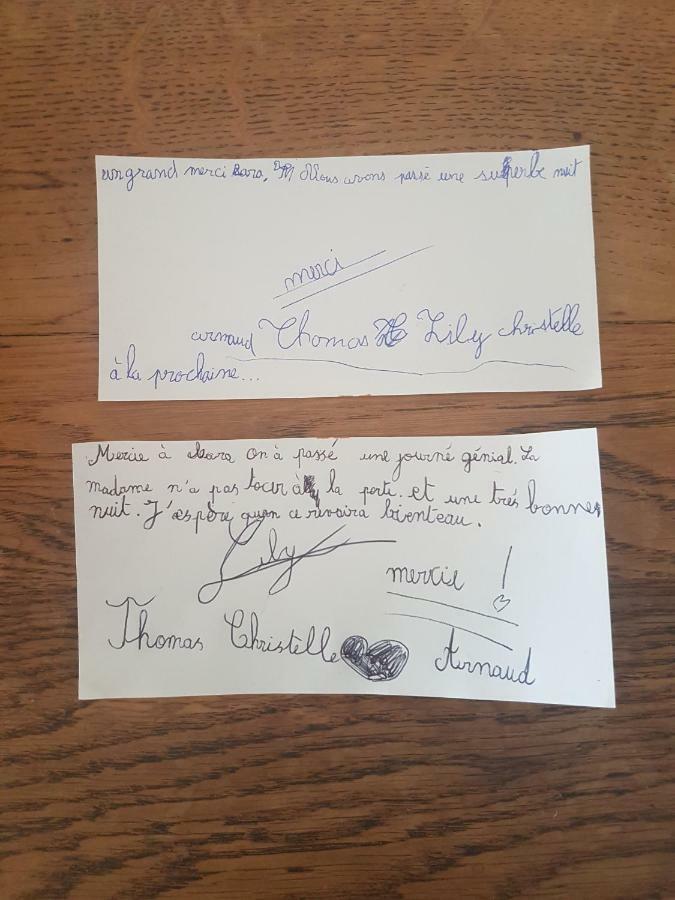 un grand merci Sara, Nous avons passé une superbe nuit
merci
arnaud Thomas Lily christelle
à la prochaine...
Mercie à Sara on à passé une journé génial. La
madame n'a pas tocur à la porte. et une trés bonne
nuit. J'æspère quon ce revaira bienteau.
Lily
mercie !
Thomas Christelle Arnaud